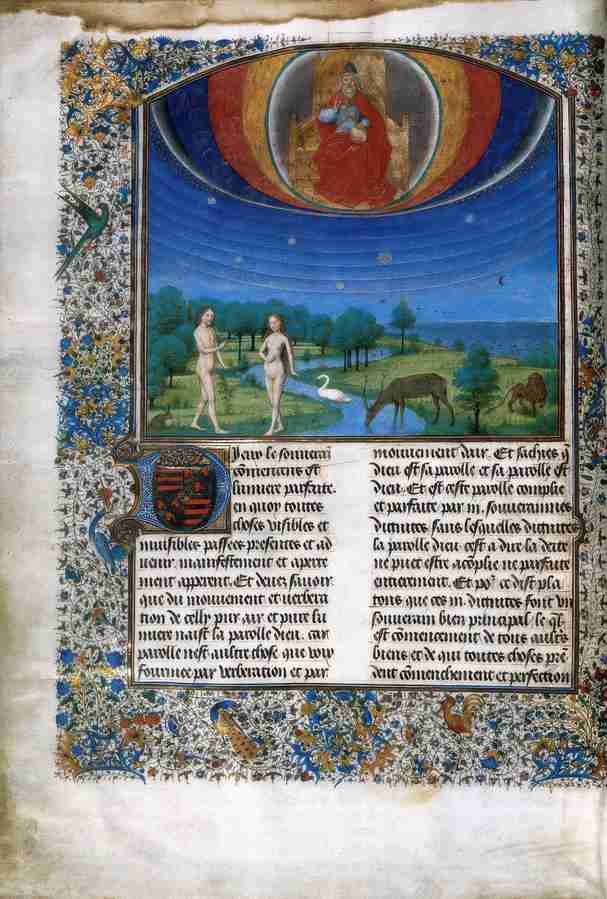 Dieu le souverai͂
co͂mencens est
lumiere parfaite.
en quoy toutes
choses visibles et
inuisibles passees presentes et ad
uenir manifestement et aperte
ment apperent. Et deuez sauoir
que du mouuement et uerbera
tion de celly pur air et pure lu
miere naist la parolle dieu. car
parolle nest aultre chose que voix
fourmee par verberation et par
mouuement dair. Et sachies q̄
dieu est sa parolle et sa parolle est
dieu. Et est ceste parolle complie
et parfaite par .iii. souuerainnes
dictnites sans lesquelles dictnites
la parolle dieu cest a dire la deite
ne puet estre acomplie ne parfaite
entierement. Et po² ce dist pla
tons que ces .iii. dictnites sont vn
souuerain bien principal. le q̄l
est co͂mencement de tous aultres
biens et de qui toutes choses pre͂
dent co͂menchement et perfection